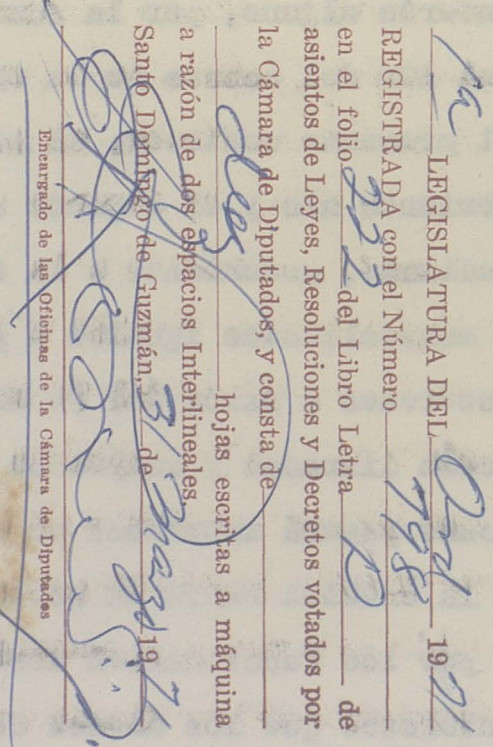 1a LEGISLATURA DEL Ord 19
REGISTRADA con el Número 798
en el folio 232 del Libro Letra D de
asientos de Leyes, Resoluciones y Decretos votados por
la Cámara de Diputados y consta de
dos hojas escritas a máquina
a razón de dos espacios Interlineales
Santo Domingo de Guzmán, 31 de Mayo 19
Encargado de las Oficinas de la Cámara de Diputados